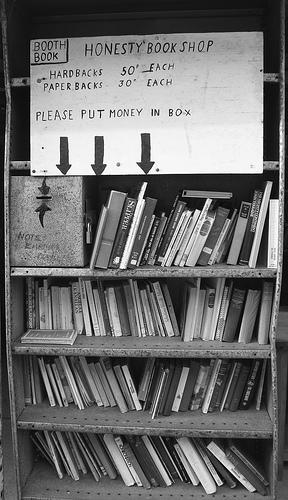 BOOTH
BOOK
HONESTY BOOK SHOP
HARDBACKS 50P EACH
PAPER.BACKS 30P EACH
PLEASE PUT MONEY IN BOX
NOTES